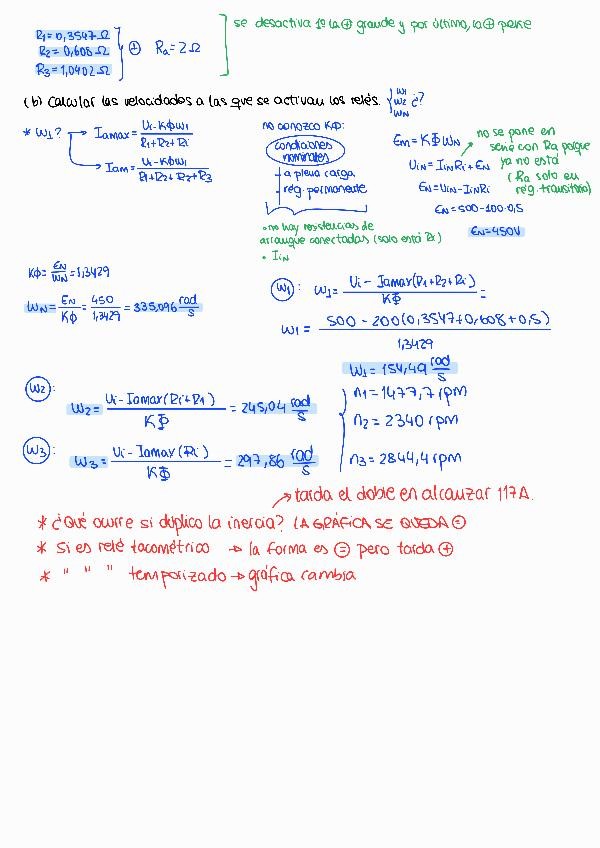 se desactiva 1º la ⊕ grande y por último, la ⊕ peque
R1 = 0,3547 Ω
R2 = 0,608 Ω
R3 = 1,0402 Ω
⊕ Ra = 2 Ω
(b) Calcular las velocidades a las que se activan los relés. { W1 W2 WN ¿?
* W1? → Iamax = (Ui - KΦW1)/(R1+R2+Ri)
→ Iam = (Ui - KΦW1)/(R1+R2+R3)
no conozco KΦ:
condiciones
nominales
- a plena carga
- rég. permanente
• no hay resistencias de
arranque conectadas (solo está Ri)
• IiN
Em = KΦWN
UiN = IiNRi + EN
EN = UiN - IiNRi
EN = 500 - 100·0,5
EN = 450V
no se pone en
serie con Ra porque
ya no está
(Ra solo en
rég. transitorio)
KΦ = EN/WN = 1,3429
WN = EN/KΦ = 450/1,3429 = 335,096 rad/s
W1: W1 = (Ui - Iamax(R1+R2+Ri))/KΦ =
W1 = (500 - 200(0,3547+0,608+0,5))/1,3429
W1 = 154,49 rad/s
W2: W2 = (Ui - Iamax(Ri+R1))/KΦ = 245,04 rad/s
W3: W3 = (Ui - Iamax(Ri))/KΦ = 297,86 rad/s
n1 = 1477,7 rpm
n2 = 2340 rpm
n3 = 2844,4 rpm
→ tarda el doble en alcanzar 117A.
* ¿Qué ocurre si duplico la inercia? LA GRÁFICA SE QUEDA ⊜
* Si es relé tacométrico → la forma es ⊜ pero tarda ⊕
* " " " temporizado → gráfica cambia